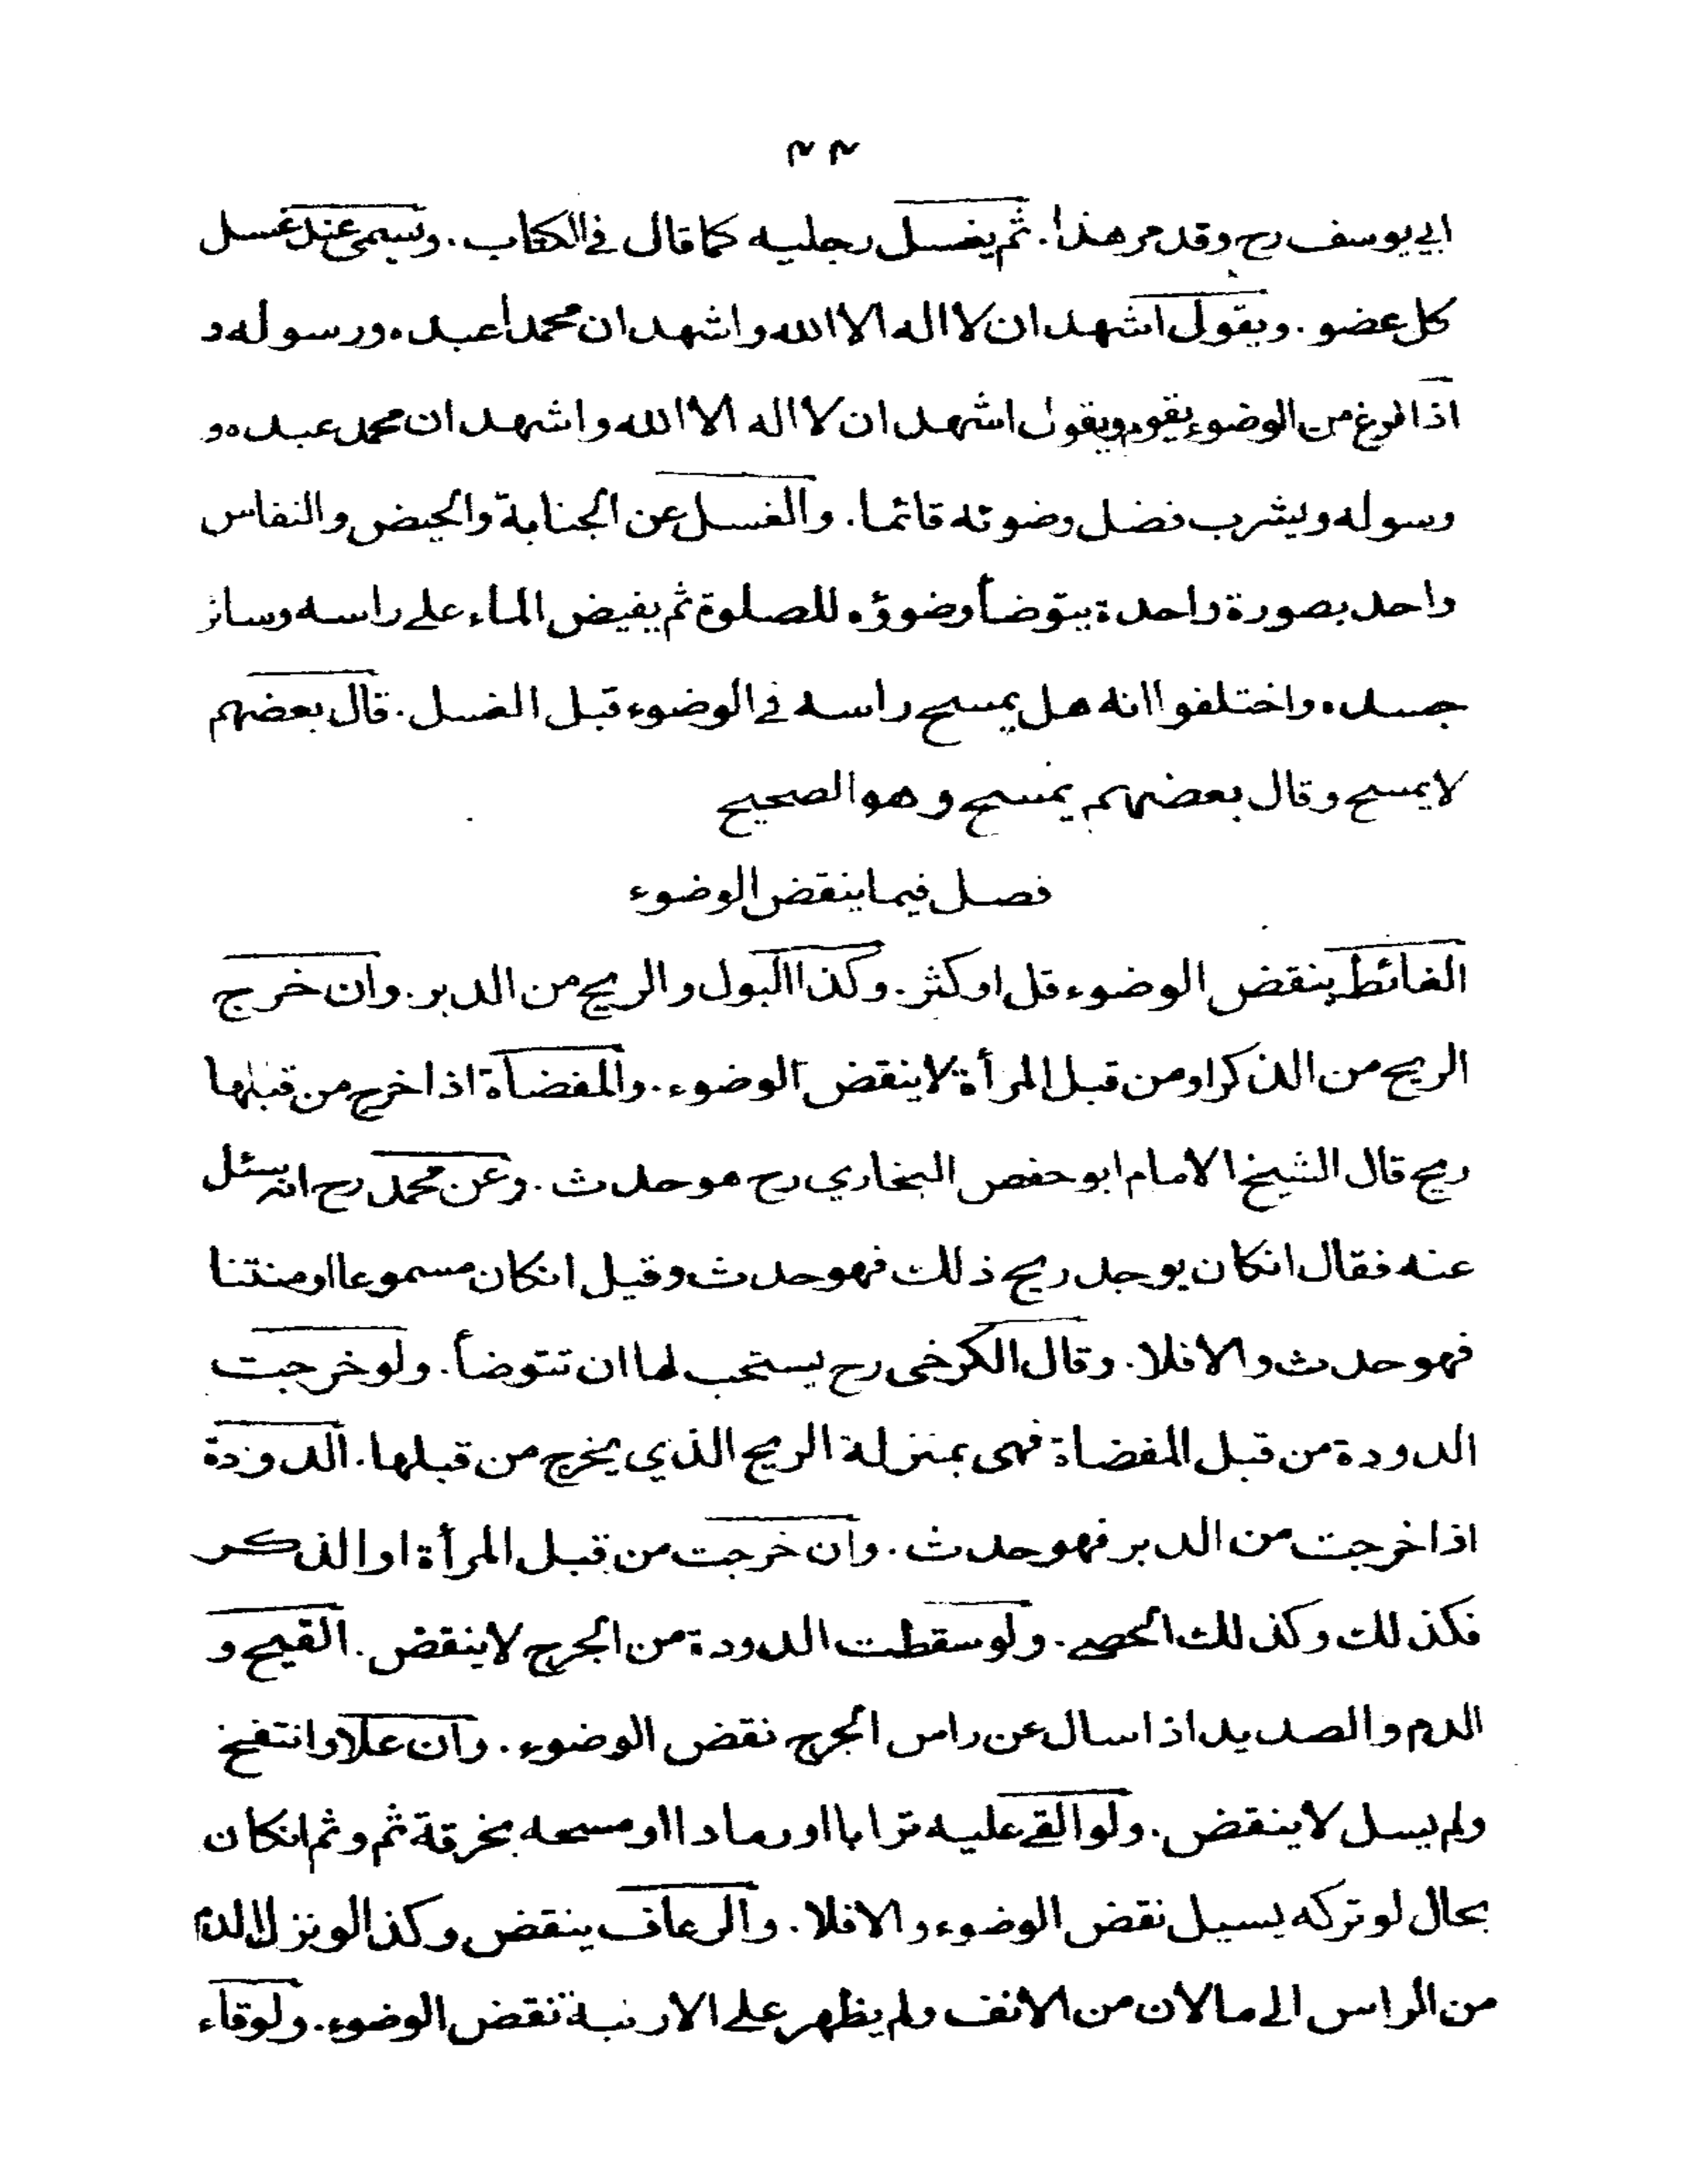 ٢٢
ابي يوسف رح وقد مر هذا. ثم يغسل رجليه كما قال في الكتاب. ويسمي عند غسل
كل عضو. ويقول اشهد ان لا اله الا الله واشهد ان محمدا عبده ورسوله و
اذا فرغ من الوضوء يقوم ويقول اشهد ان لا اله الا الله واشهد ان محمد عبده و
رسوله ويشرب فضل وضوئه قائما. والغسل عن الجنابة والحيض والنفاس
واحد بصورة واحدة يتوضأ وضوؤه للصلوة ثم يفيض الماء على راسه وسائر
جسده واختلفوا انه هل يمسح راسه في الوضوء قبل الغسل. قال بعضهم
لا يمسح وقال بعضهم يمسح وهو الصحيح
فصل فيما ينقض الوضوء
الغائط ينقض الوضوء قل او كثر. وكذا البول والريح من الدبر. وان خرج
الريح من الذكر او من قبل المرأة لا ينقض الوضوء. والمفضاة اذا خرج من قبلها
ريح قال الشيخ الامام ابو حفص البخاري رح هو حدث. وعن محمد رح انه سئل
عنه فقال انكان يوجد ريح ذلك فهو حدث وقيل انكان مسموعا او منتنا
فهو حدث والا فلا. وقال الكرخى رح يستحب لها ان تتوضأ. ولو خرجت
الدودة من قبل المفضاة فهى بمنزلة الريح الذي يخرج من قبلها. الدودة
اذا خرجت من الدبر فهو حدث. وان خرجت من قبل المرأة او الذكر
فكذلك وكذلك الحصى. ولو سقطت الدودة من الجرح لا ينقض. القيح و
الدم والصديد اذا سال عن راس الجرح نقض الوضوء. وان علا وانتفخ
ولم يسل لا ينقض. ولو القى عليه ترابا او رمادا او مسحه بخرقة ثم وثم انكان
بحال لو تركه يسيل نقض الوضوء والا فلا. والرعاف ينقض وكذا لو نزل الدم
من الراس الى مالان من الانف ولم يظهر على الارنبة نقض الوضوء. ولو قاء